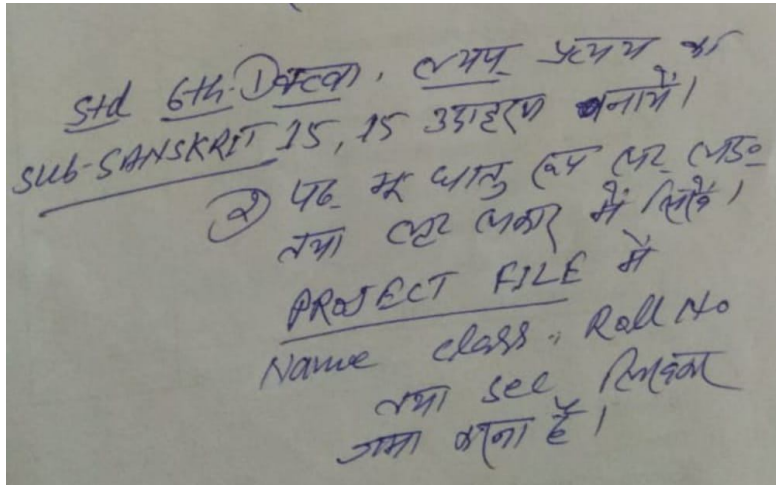 Std 6th. ① क्त्वा, ल्यप् प्रत्यय का
SUB-SANSKRIT 15, 15 उदाहरण बनायें।
② पठ् भू धातु रूप लट् लङ०
तथा लृट् लकार में लिखें।
PROJECT FILE में
Name class, Roll No
तथा sec लिखकर
जमा करना है।